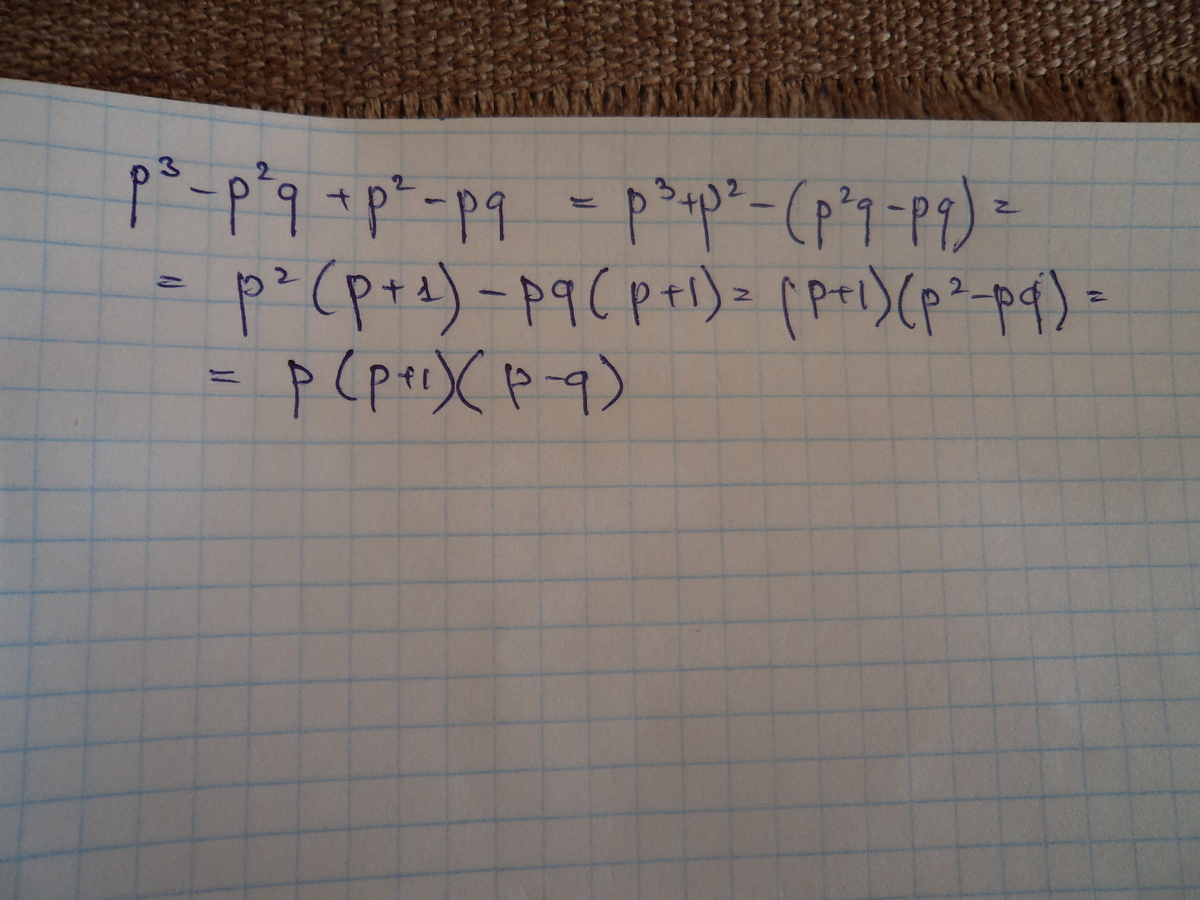 p³ - p²q + p² - pq = p³+p² - (p²q - pq) =
= p² (p+1) - pq (p+1) = (p+1)(p² - pq) =
= p (p+1)(p - q)